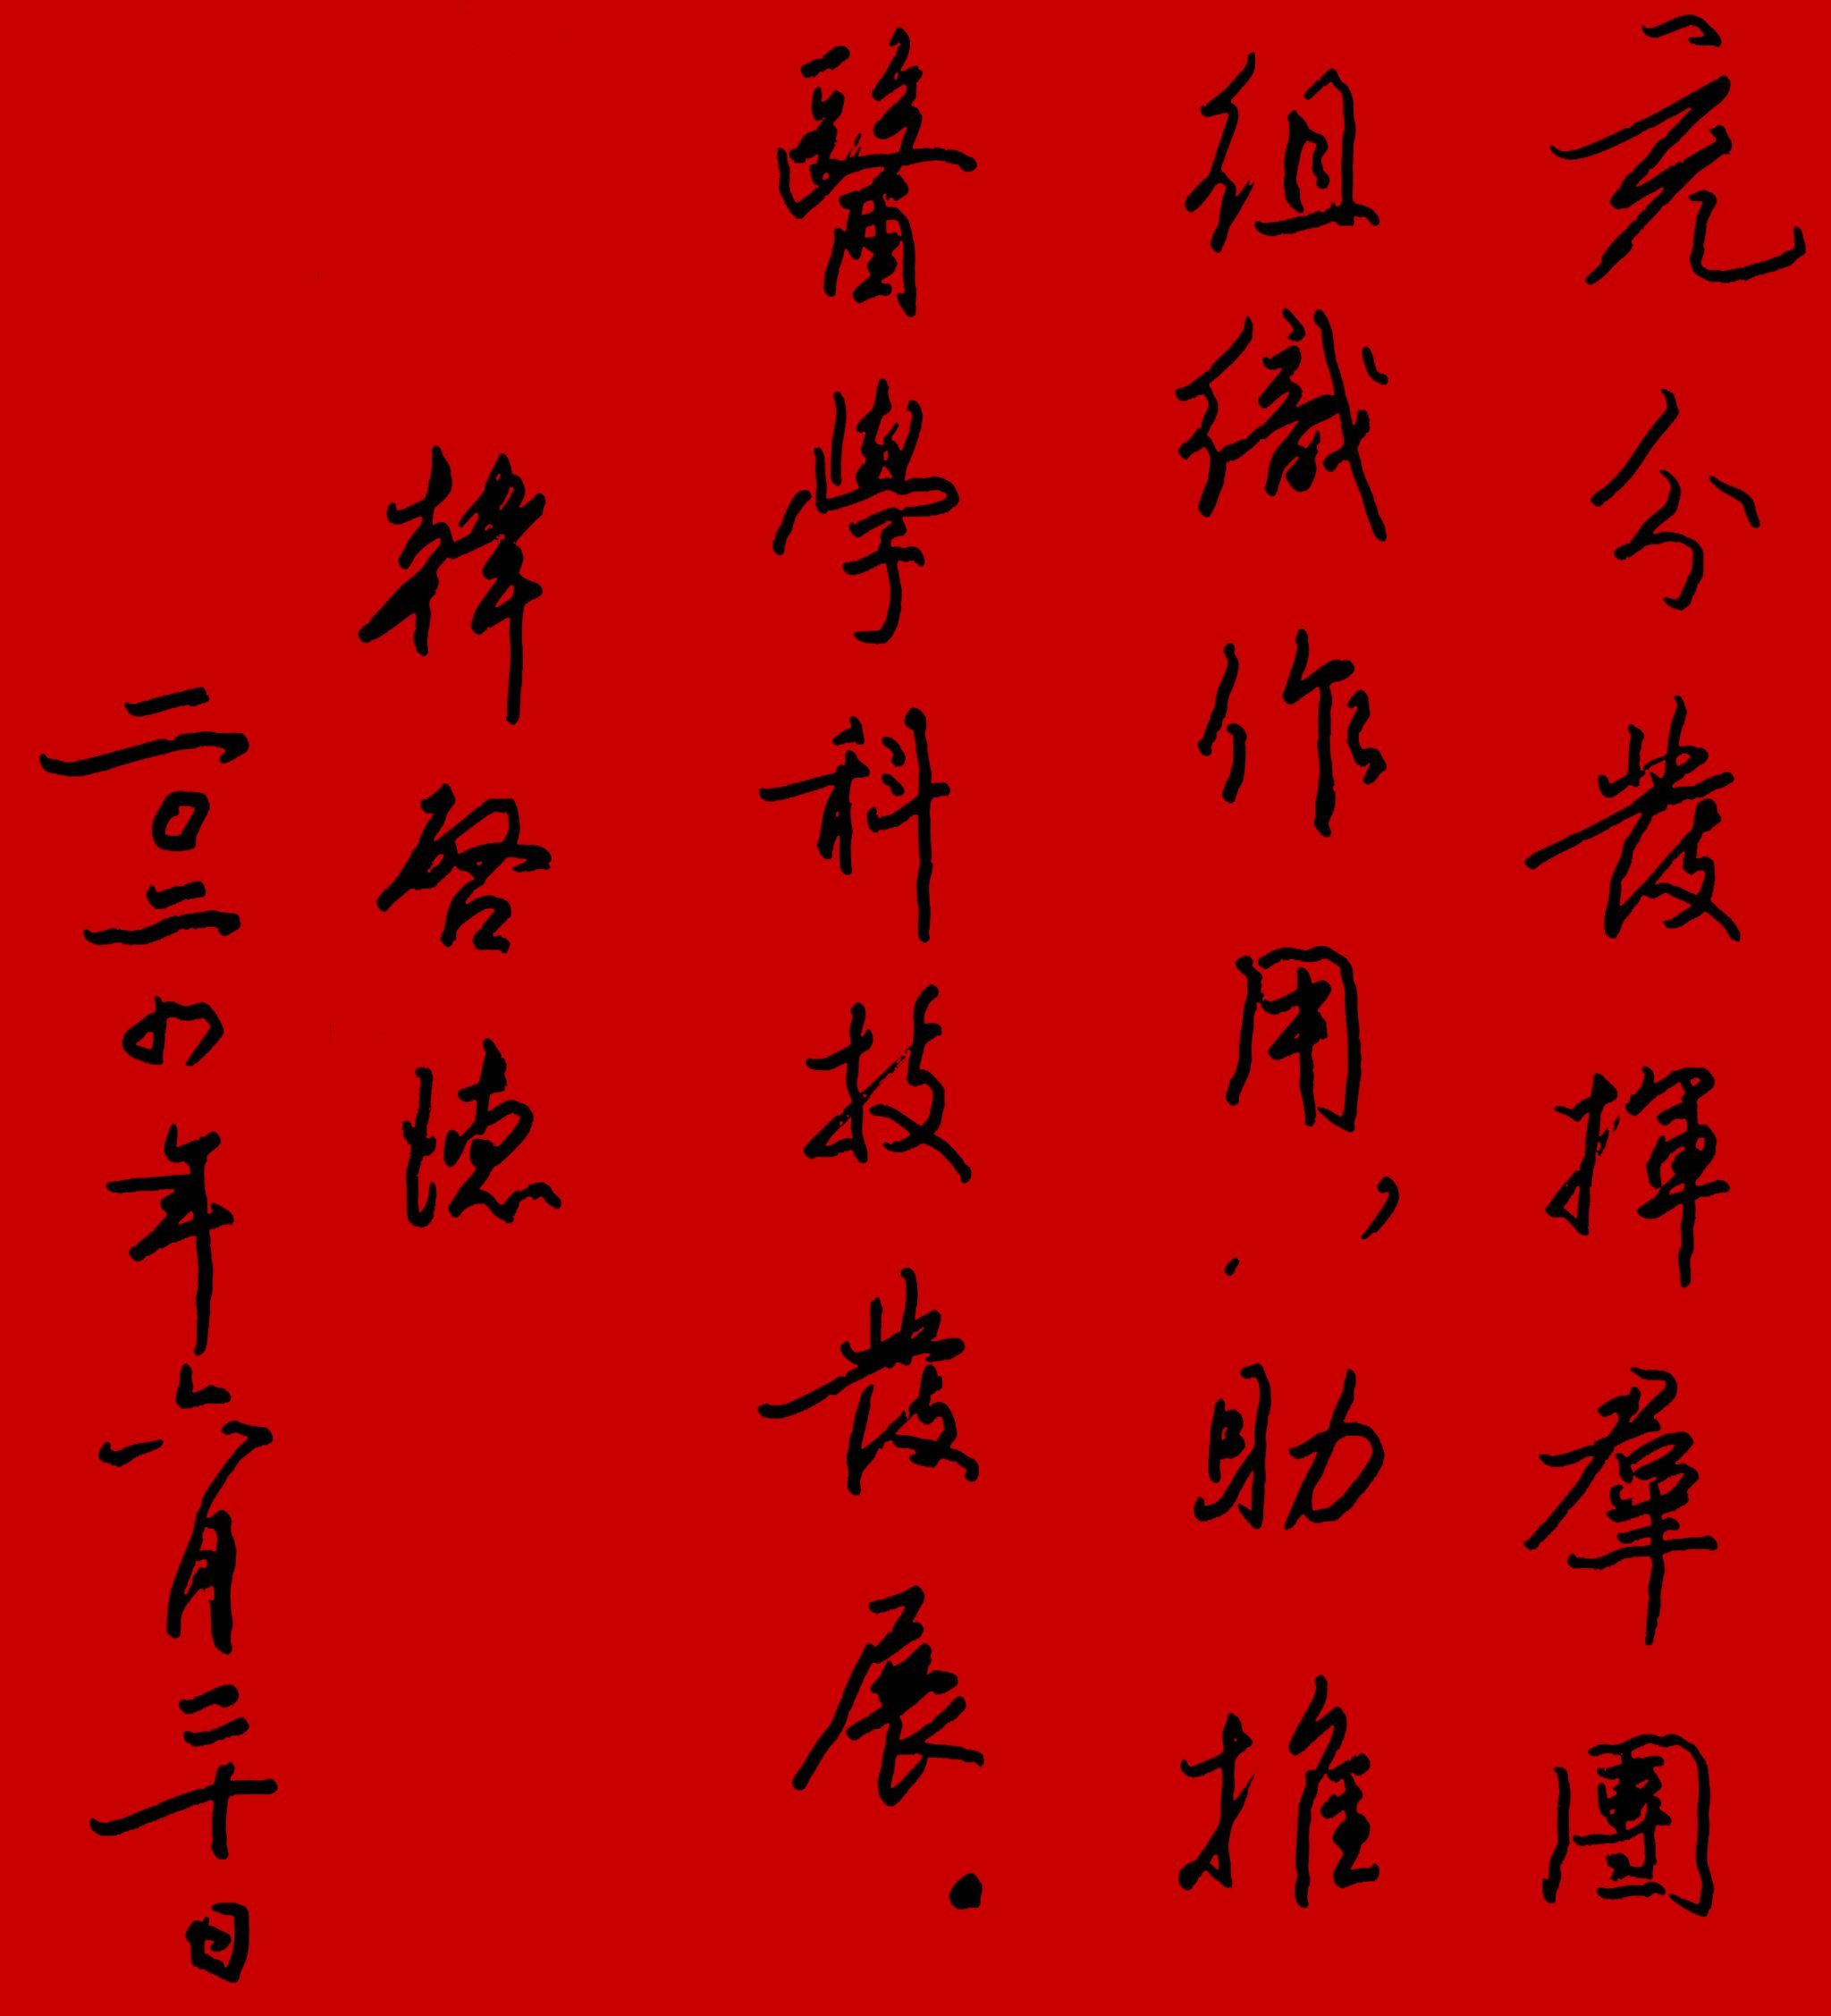 充分發揮羣團
組織作用,助推
醫學科技發展.
韓啓德
二〇二四年六月二十日